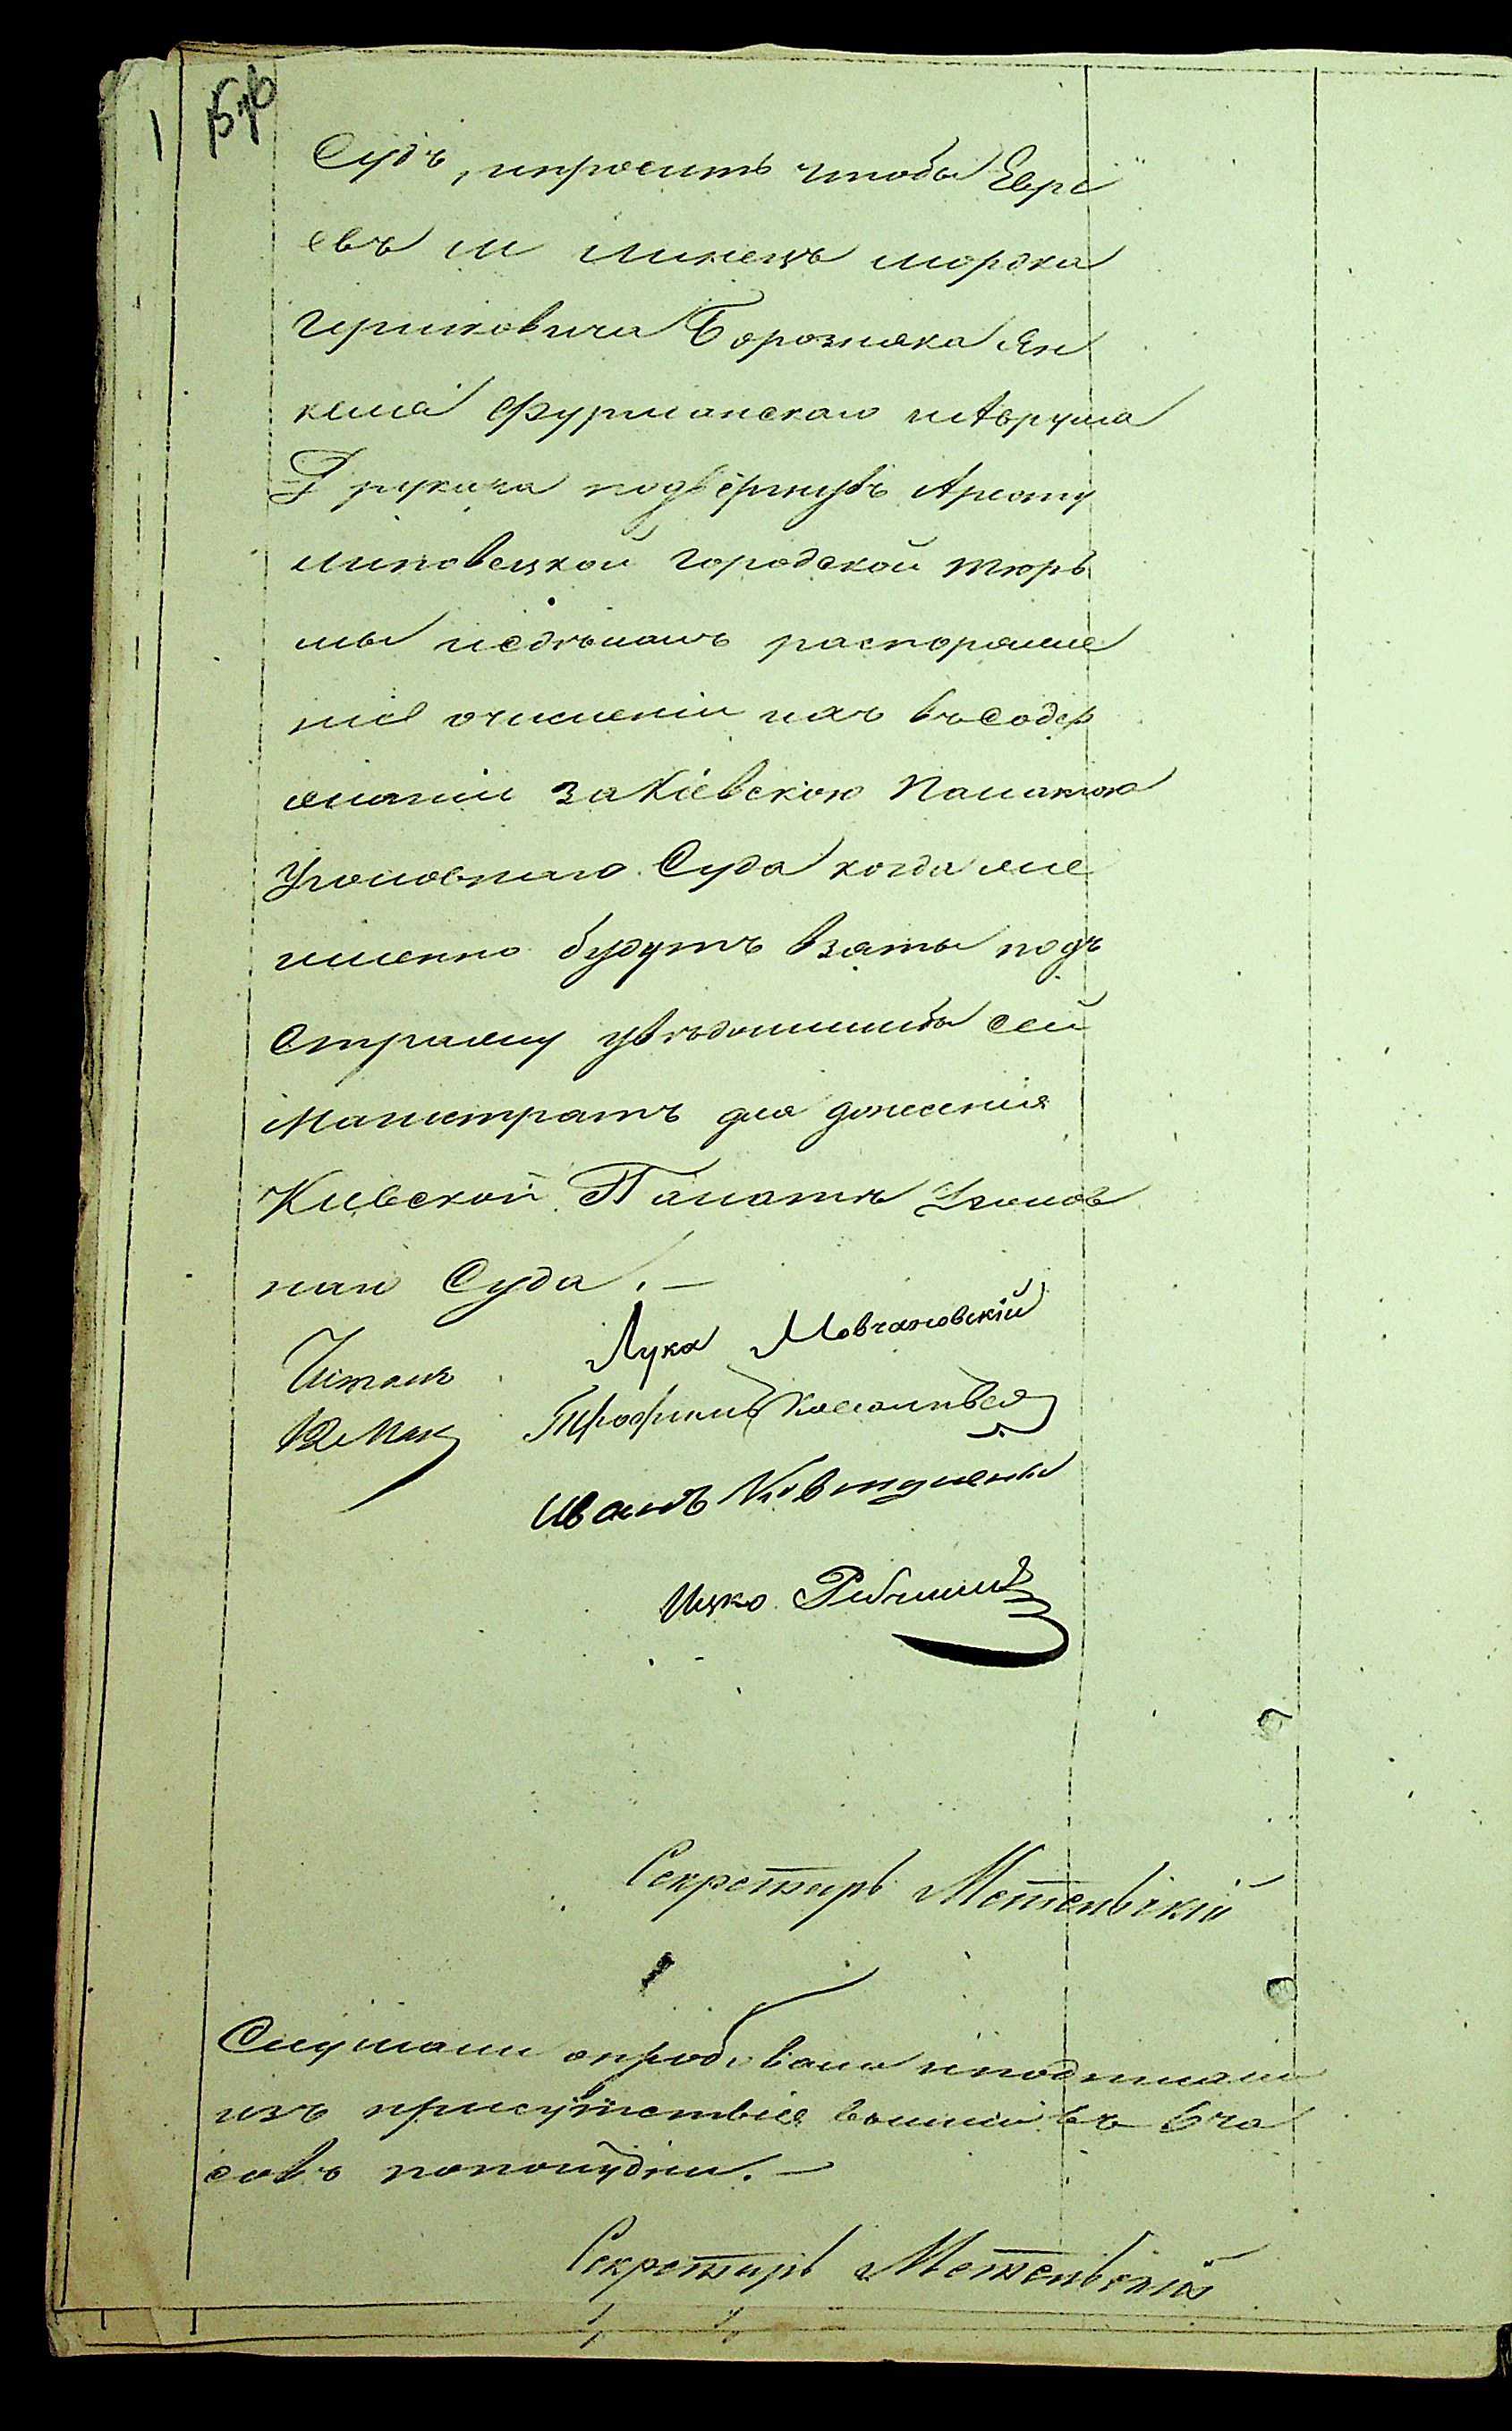 Судъ, и просить чтобы Евре
евъ м Линецъ Мордка
Гершковича Борозняка Ян
келя Фурманскаго и Аврума
Грукача подвергнувъ Аресту
Липовецкой городской тюрь
мы исделавъ распоряже
ніе очисленіи ихъ въ содер
жаніи за Кіевскою Палатою
Уголовнаго Суда когда же
именно будутъ взяты подъ
Стражу увѣдомилибы сей
Магистратъ для донесенія
Киевской Палатѣ Уголов
наго Суда. —
Читалъ
Лука Мовчановскій
Трофимъ
Иванъ
Ицко
Секретарь Метельскій
Слушали апробовали и подписали
изъ присутствія вышли въ 6 ча
совъ пополудни. —
Секретарь Метельскій